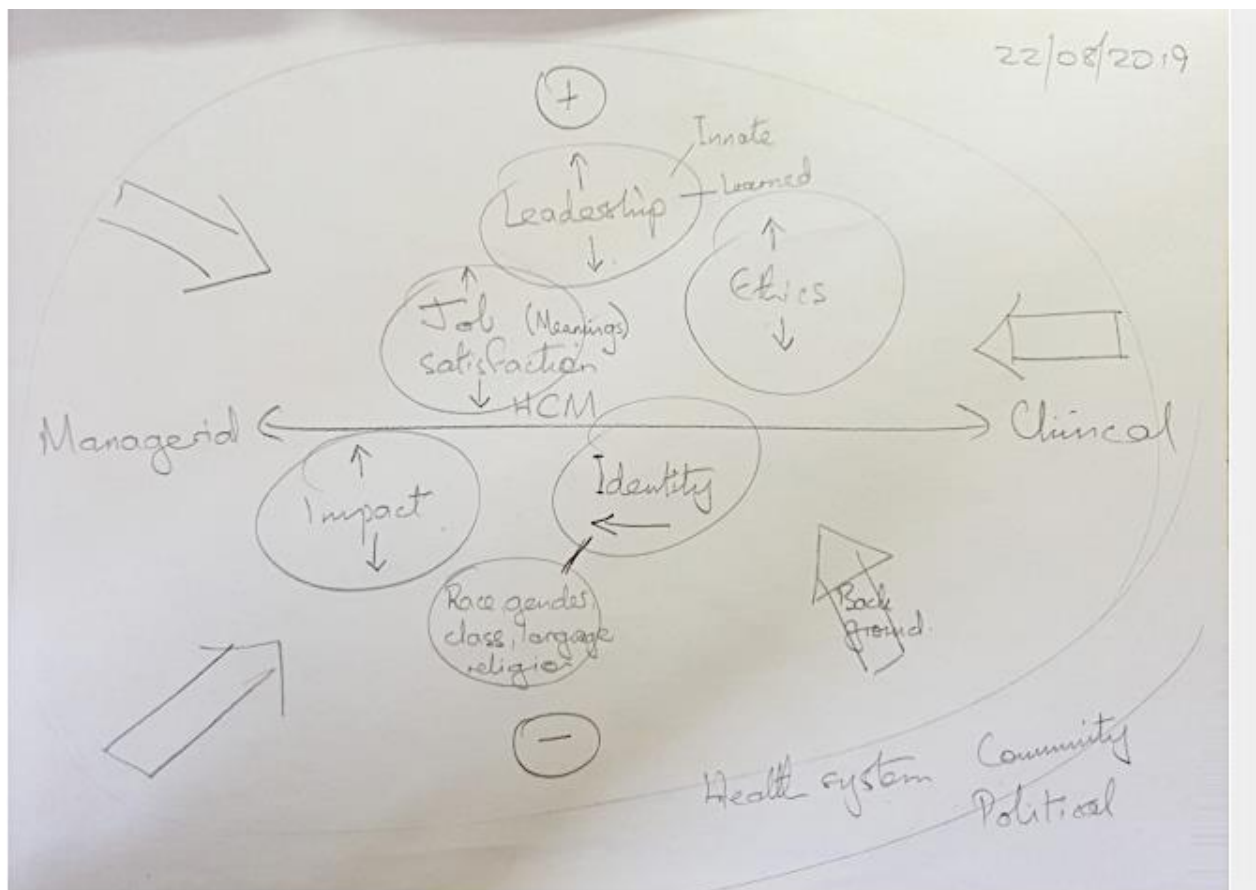 22/08/2019
+
Innate
Learned
Leadership
Ethics
Job (Meanings)
satisfaction
HCM
Managerial
Clinical
Impact
Identity
Race, gender,
class, language
religion
Back
ground.
−
Health system
Community
Political